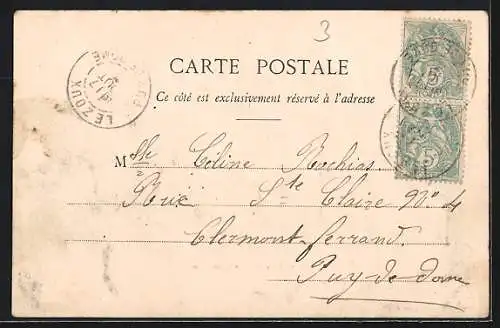 3
CARTE POSTALE
Ce côté est exclusivement réservé à l'adresse
LEZOUX
5
5
Mlle Céline Rochias
Rue Ste Claire No 4
Clermont-ferrand
Puy-de-dome